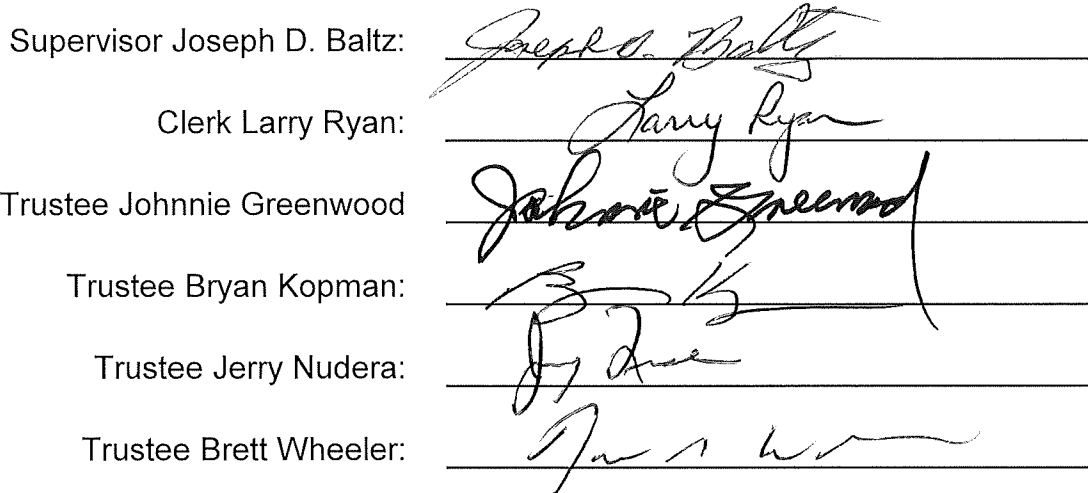 Supervisor Joseph D. Baltz: Joseph D. Baltz
Clerk Larry Ryan: Larry Ryan
Trustee Johnnie Greenwood Johnnie Greenwood
Trustee Bryan Kopman:
Trustee Jerry Nudera:
Trustee Brett Wheeler: